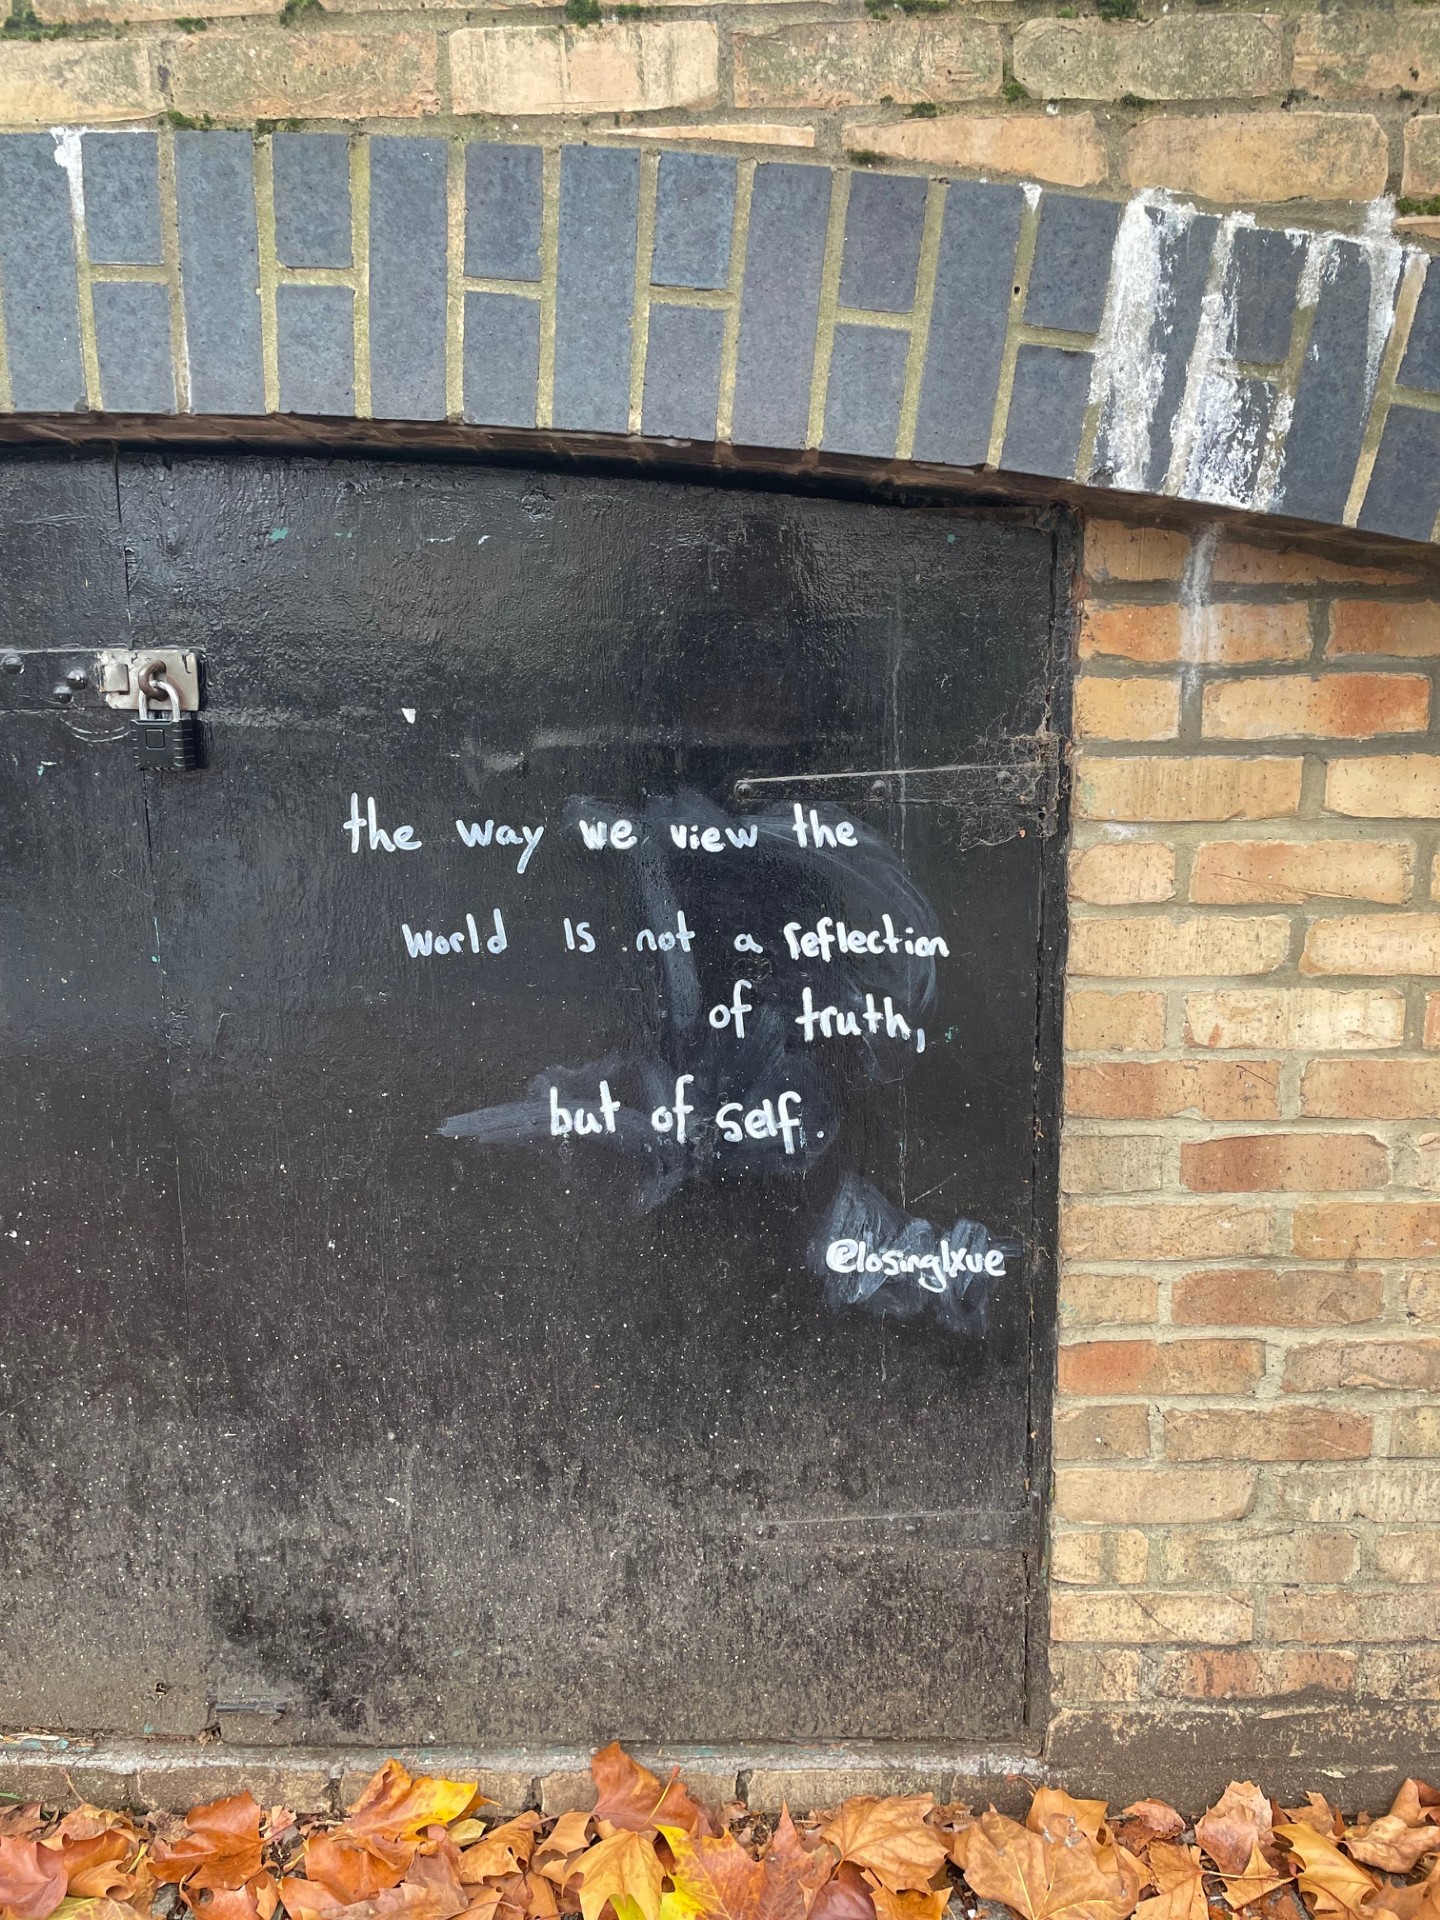 the way we view the
world is not a reflection
of truth,
but of self.
@losinglxve